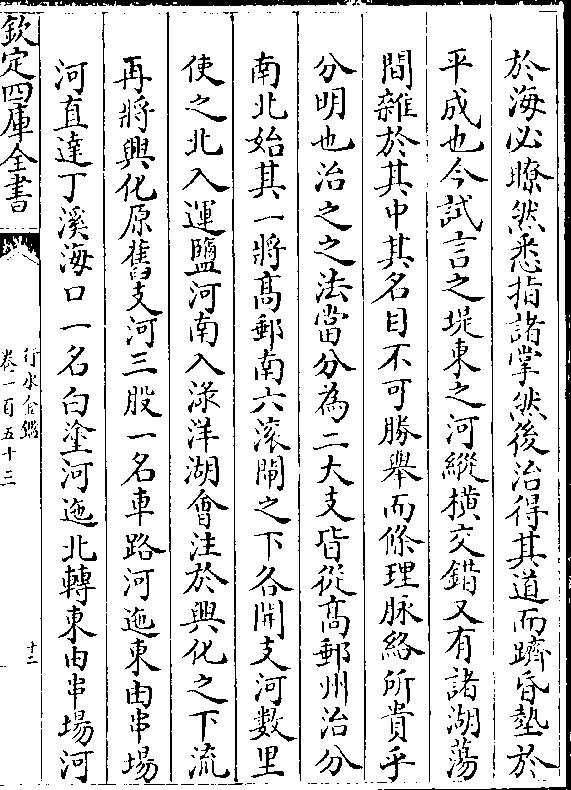 於海必瞭然悉指諸掌然後治得其道而躋昏墊於
平成也今試言之堤東之河縱橫交錯又有諸湖蕩
間雜於其中其名目不可勝舉而條理脉絡所貴乎
分明也治之之法當分為二大支皆從髙郵州治分
南北始其一將髙郵南六滚閘之下各開支河數里
使之北入運鹽河南入渌洋湖會注於興化之下流
再將興化原舊支河三股一名車路河迤東由串場
河直達丁溪海口一名白塗河迤北轉東由串場河
欽定四庫全書
行水金鑑
卷一百五十三
十三